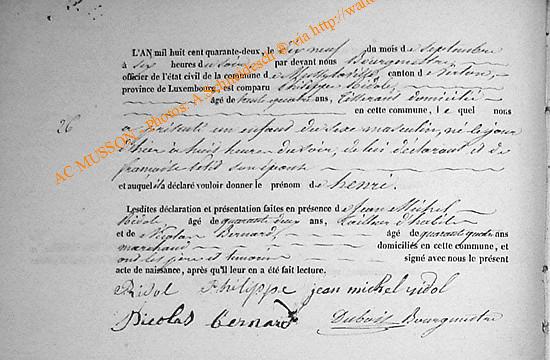 L'AN mil huit cent quarante-deux, le dix neuf du mois de Septembre
à six heures du soir par devant nous Bourgmestre
officier de l'état civil de la commune de Mussy la ville, canton de Virton,
province de Luxembourg, est comparu Philippe Ridol
âgé de trente quatre ans, Tisserand domicilié
en cette commune, lequel nous
26 a présenté un enfant du sexe masculin, né le jour
d'hier à huit heures du soir, de lui déclarant et de
françoise son épouse
et auquel il a déclaré vouloir donner le prénom de henri.
Lesdites déclaration et présentation faites en présence de Jean Michel
Ridol âgé de quarante deux ans, tailleur d'habits
et de Nicolas Bernard âgé de quarante quatre ans
marchand domiciliés en cette commune, et
ont les père et témoins signé avec nous le présent
acte de naissance, après qu'il leur en a été fait lecture.
Ridol Philippe jean michel ridol
Nicolas Bernard Bourgmestre
AC MUSSON. Photos: A. Schmidesch © via http://wa